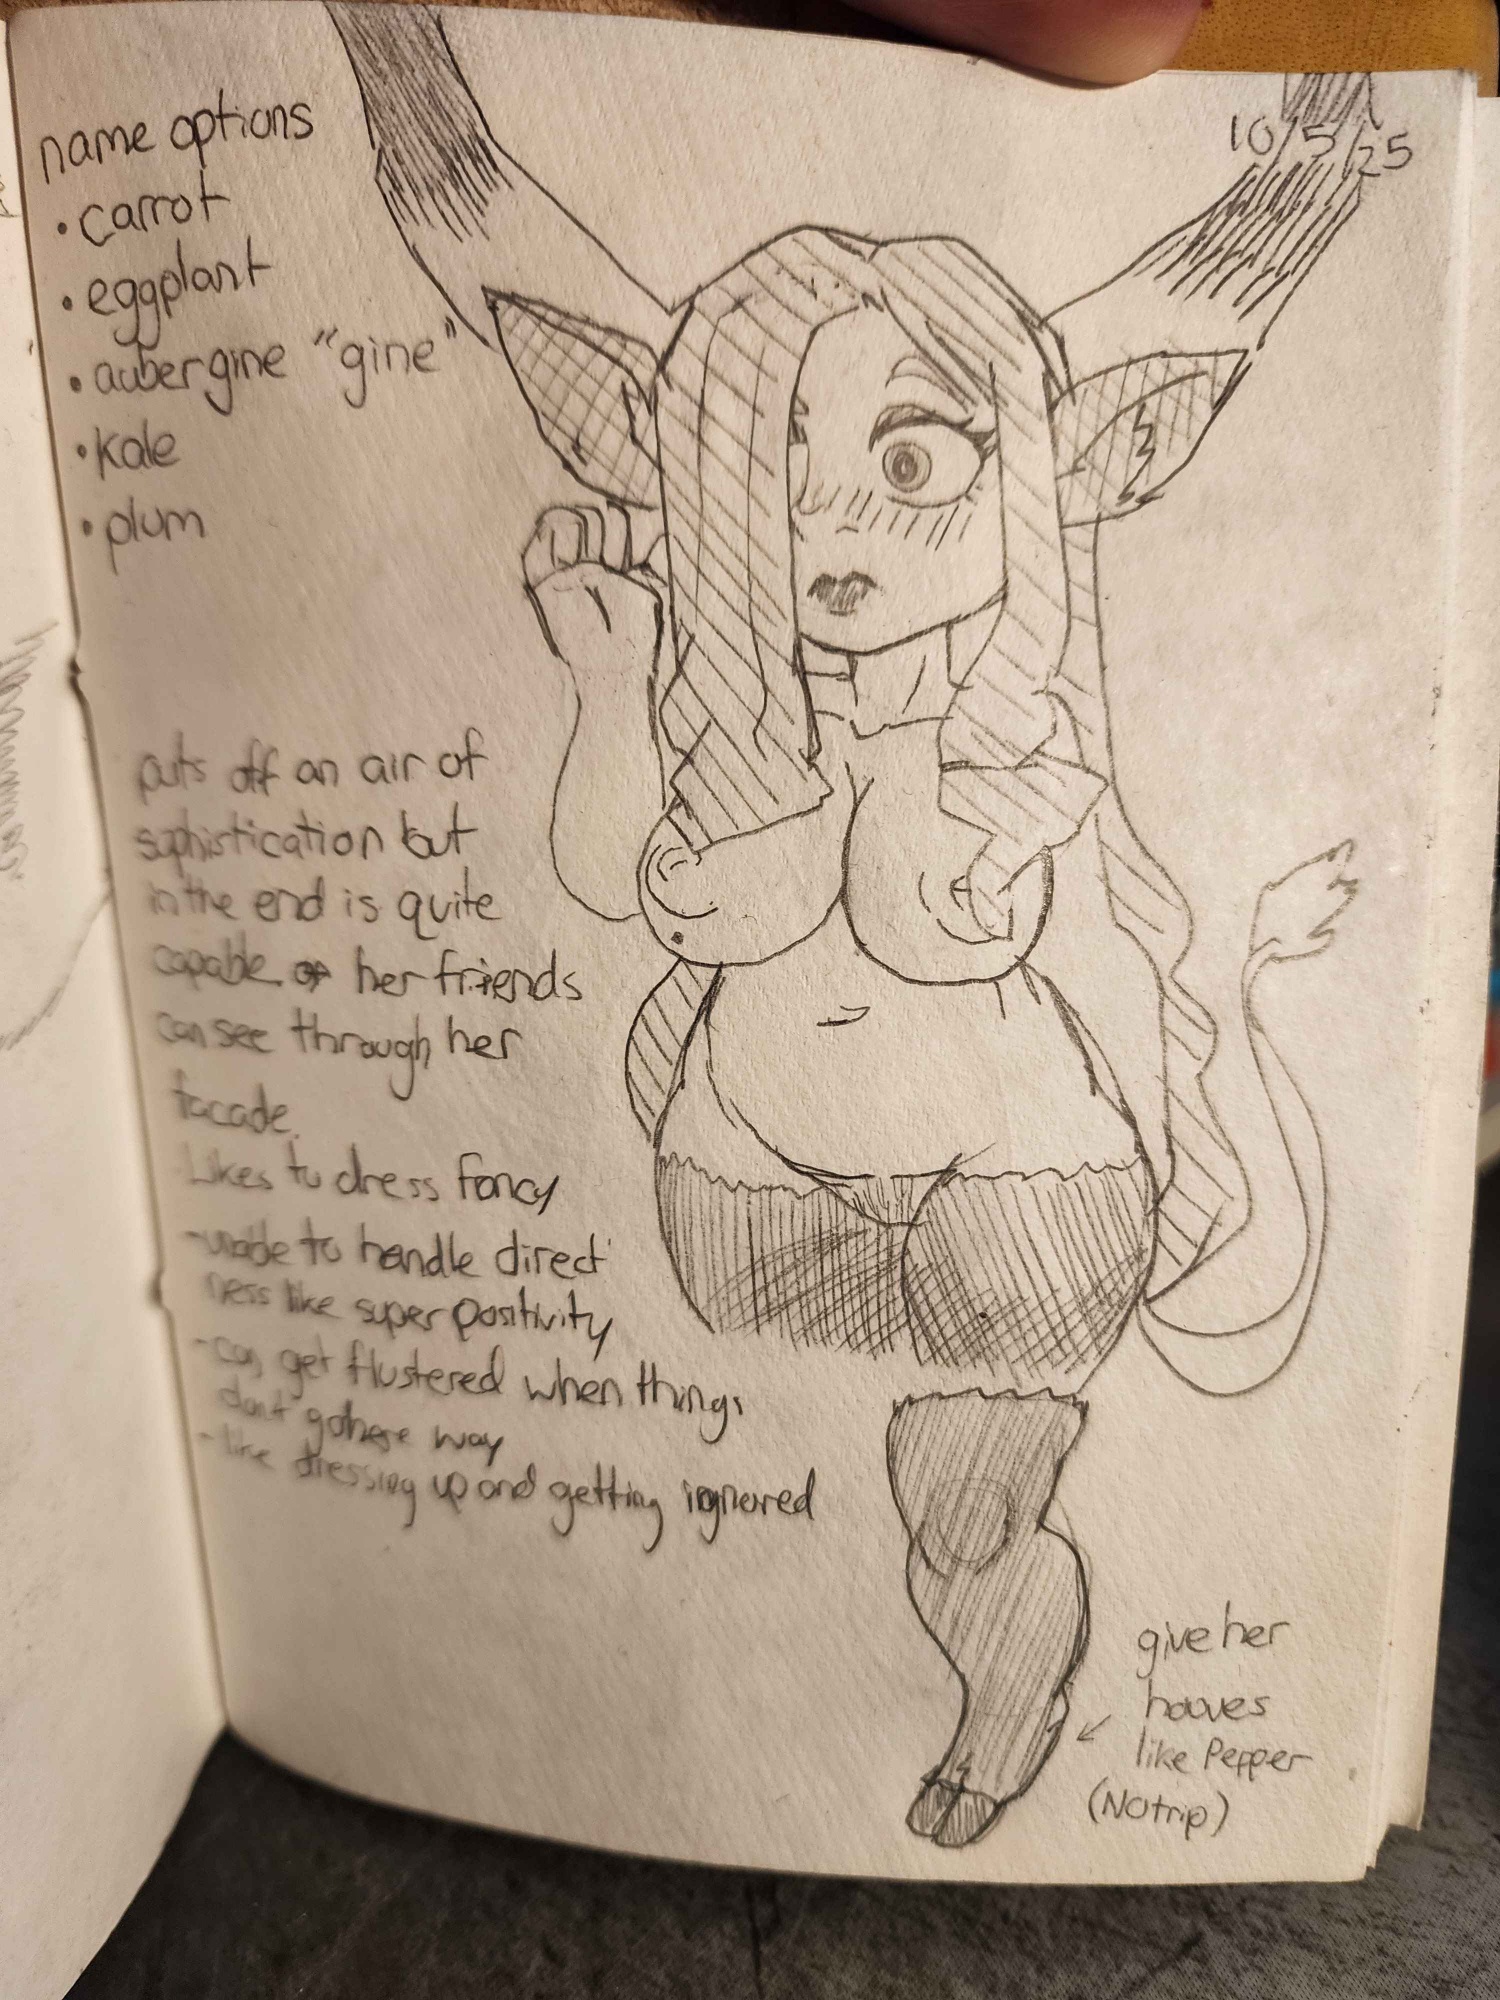 name options
• carrot
• eggplant
• aubergine "gine"
• kale
• plum
10/5/25
puts off an air of
sophistication but
in the end is quite
capable or her friends
can see through her
facade.
Likes to dress fancy
-unable to handle direct
ness like super positivity
-can get flustered when things
dont go here way
-like dressing up and getting ignored
give her
hooves
like Pepper
(Notrip)